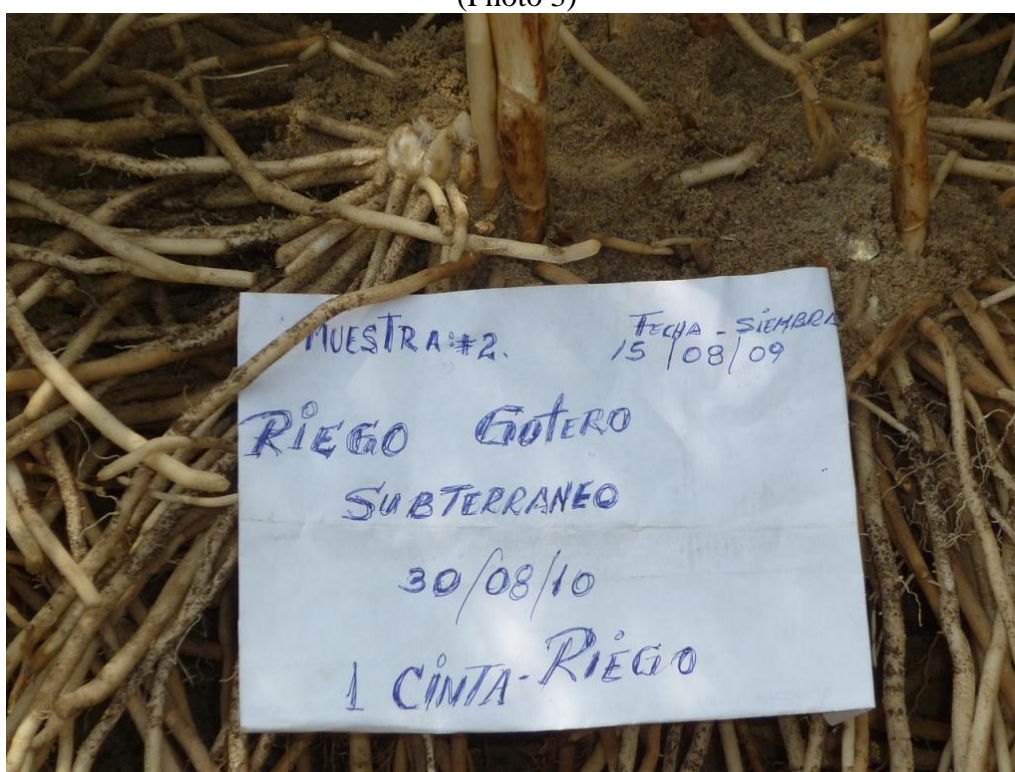 (Photo 3)
MUESTRA:#2.
FECHA - SIEMBRA
15/08/09
RIEGO GOTERO
SUBTERRANEO
30/08/10
1 CINTA-RIEGO